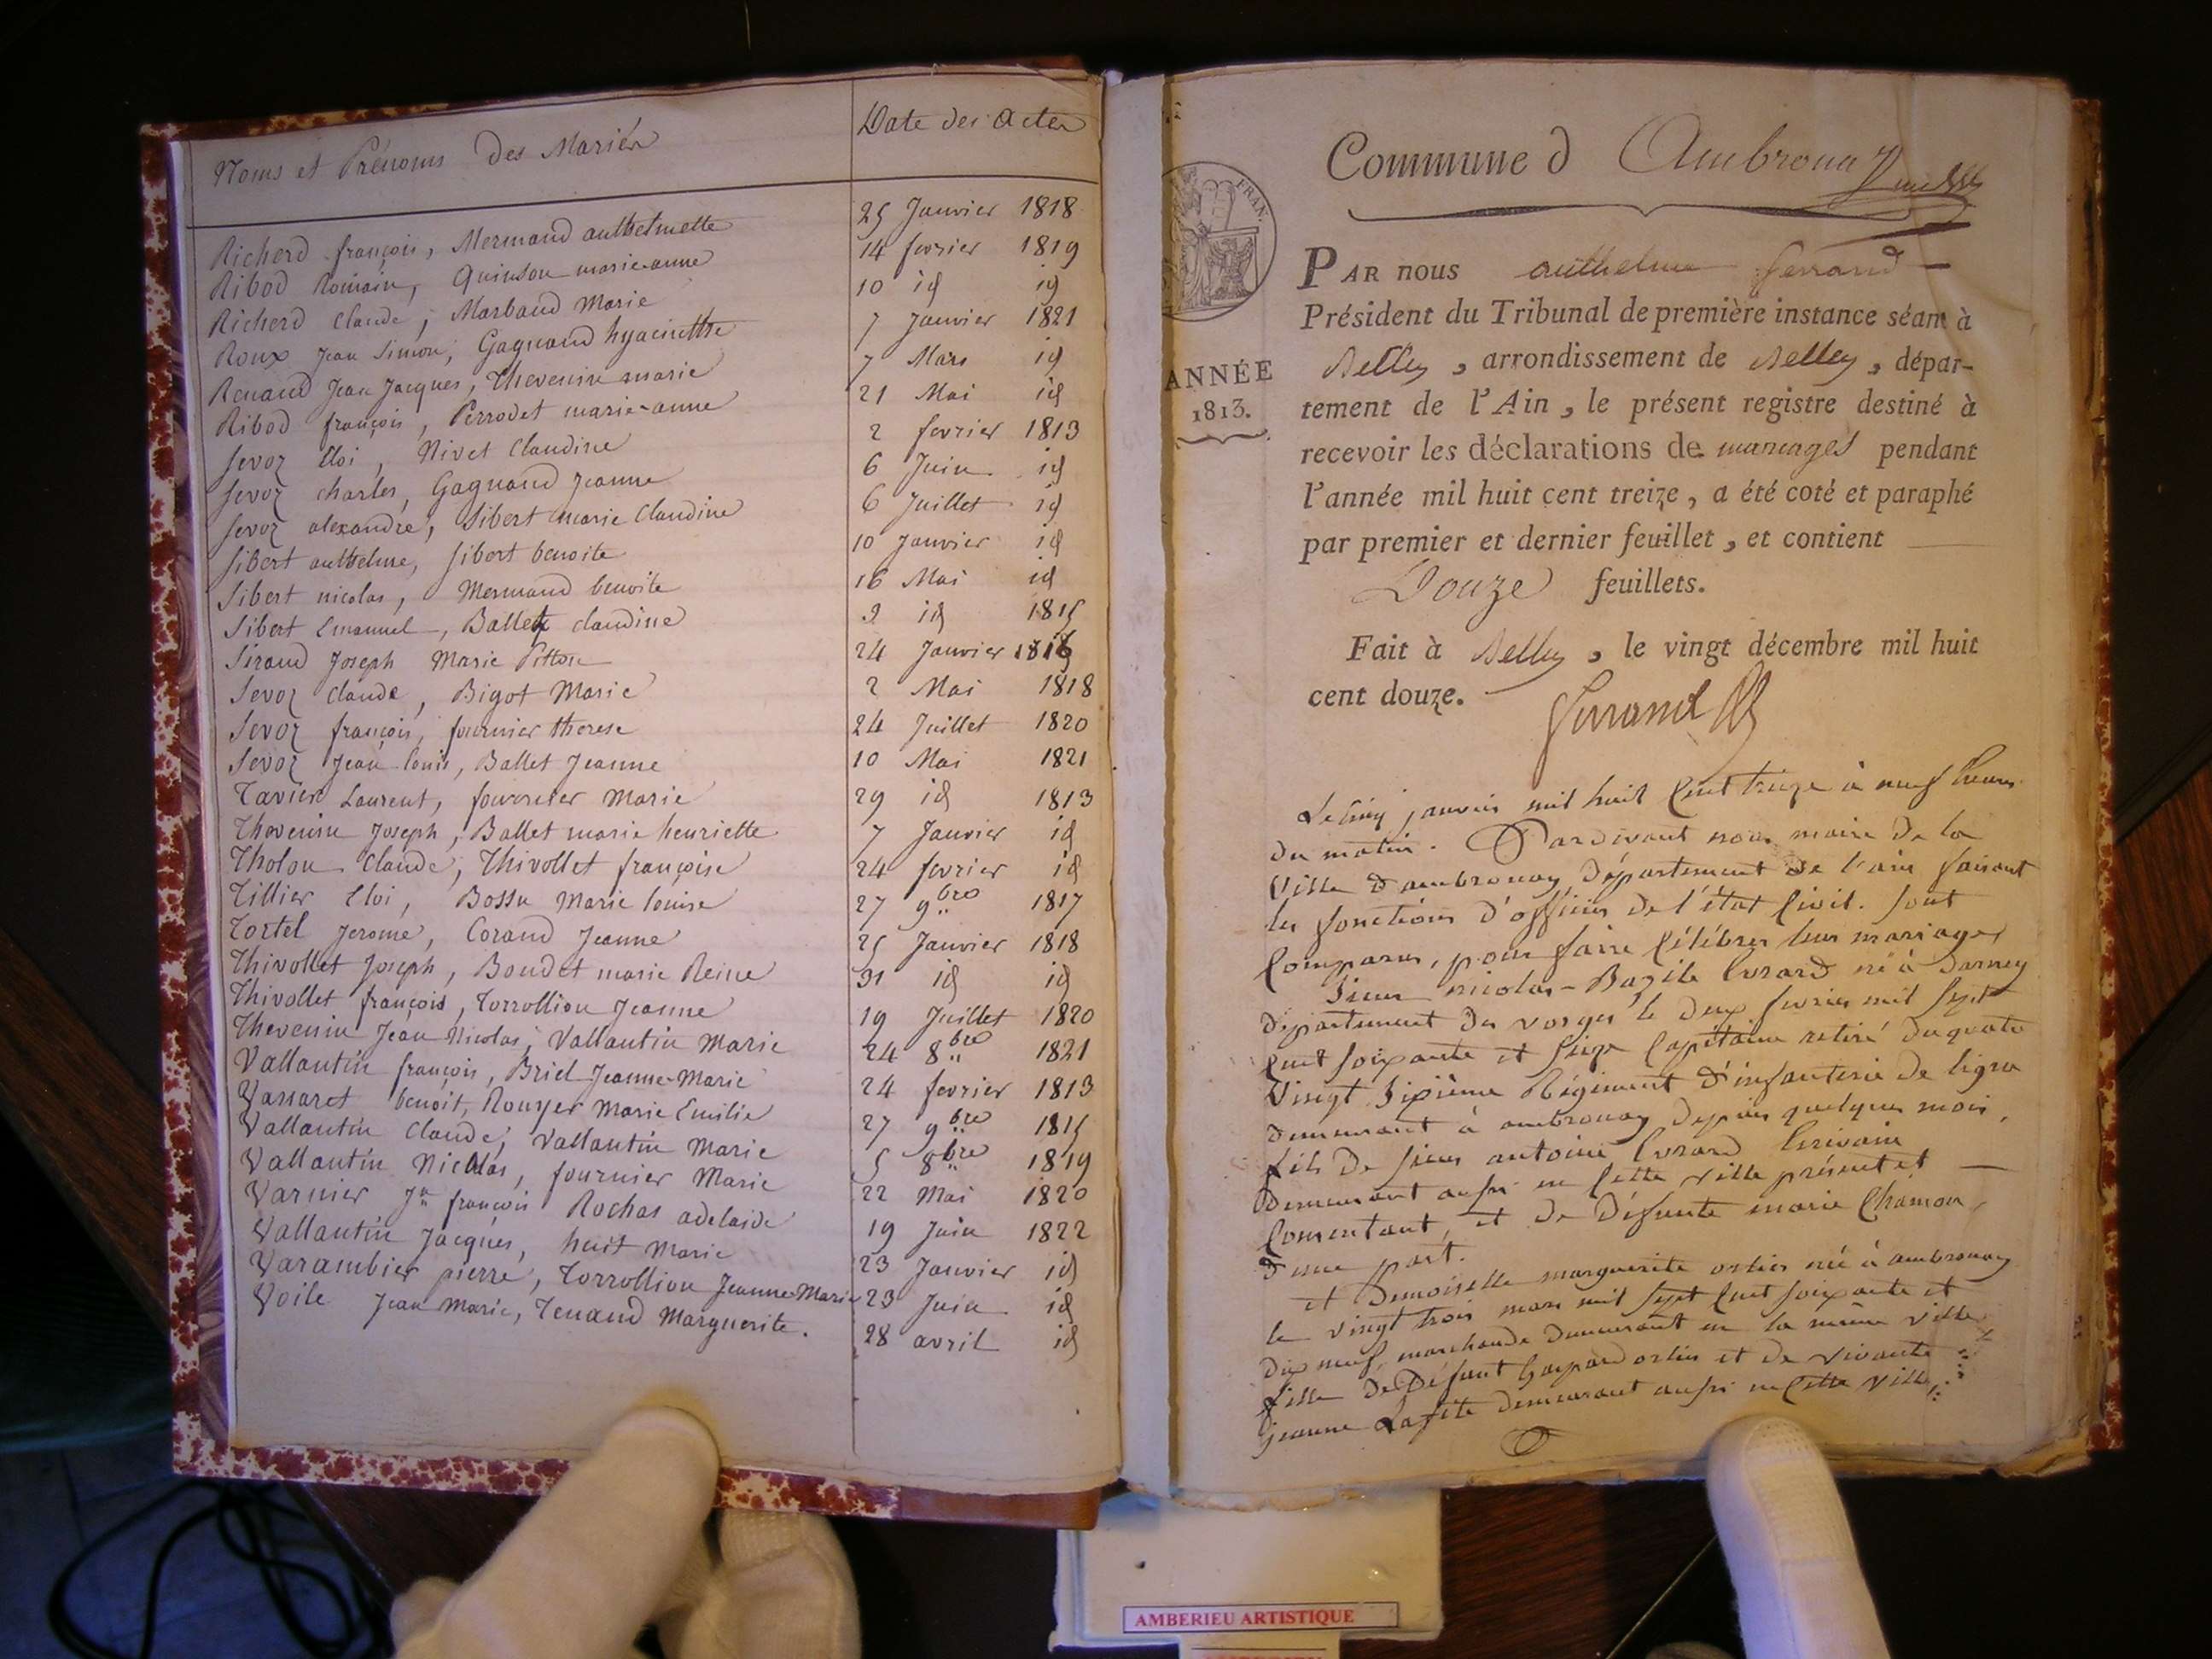 Noms et Prénoms des Mariés
Date des Actes
Richerd françois, Mermand anthelmette 25 Janvier 1818
Ribod Romain, Quinson marie-anne 14 fevrier 1819
Richerd Claude, Marbaud Marie 10 id id
Roux Jean Simon, Gagnand hyacinthe 7 Janvier 1821
Renaud Jean Jacques, Thevenin marie 7 Mars id
Ribod françois, Perrodet marie-anne 21 Mai id
Sevoz Eloi, Nivet Claudine 2 fevrier 1813
Sevoz charles, Gagnand Jeanne 6 Juin id
Sevoz alexandre, Sibert marie Claudine 6 Juillet id
Sibert anthelme, Sibert benoite 10 Janvier id
Sibert nicolas, Mermand benoite 16 Mai id
Sibert Emanuel, Ballet claudine 2 id 1815
Siraud Joseph Marie Pitton 24 Janvier 1816
Sevoz Claude, Bigot Marie 2 Mai 1818
Sevoz françois, fournier therese 24 Juillet 1820
Sevoz Jean Louis, Ballet Jeanne 10 Mai 1821
Tavier Laurent, Marie 29 id 1813
Thevenin Joseph, Ballet marie henriette 7 Janvier id
Tholon Claude, Thivollet françoise 24 fevrier id
Tillier Eloi, Bossu Marie louise 27 9bre 1817
Tortel Jerome, Corand Jeanne 25 Janvier 1818
Thivollet Joseph, Boudet marie Reine 31 id id
Thivollet françois, Torrollion Jeanne 19 Juillet 1820
Thevenin Jean Nicolas, Vallantin Marie 24 8bre 1821
Vallantin françois, Briel Jeanne-Marie 24 fevrier 1813
Vassaret benoit, Rouyer Marie Emilie 27 9bre 1815
Vallantin Claude, Vallantin Marie 5 8bre 1819
Vallantin Nicolas, fournier Marie 22 Mai 1820
Varnier Jn françois Rochas adelaide 19 Juin 1822
Vallantin Jacques, huit Marie 23 Janvier id
Varambier pierre, Torrollion Jeanne-Marie 23 Juin id
Voile Jean Marie, Tenand Marguerite. 28 avril id
Commune d Ambronay
FRAN.
ANNÉE
1813.
PAR nous anthelme ferrand
Président du Tribunal de première instance séant à
Belley, arrondissement de Belley, dépar-
tement de l'Ain, le présent registre destiné à
recevoir les déclarations de mariages pendant
l'année mil huit cent treize, a été coté et paraphé
par premier et dernier feuillet, et contient
Douze feuillets.
Fait à Belley, le vingt décembre mil huit
cent douze.
Ferrand
Le cinq janvier mil huit Cent treize à neuf heures
du matin. Pardevant nous maire de la
Ville d'ambronay Département de l'ain faisant
les fonctions d'officier de l'état Civil. sont
Comparus, pour faire Célébrer leur mariage,
Sieur nicolas-Bazile Evrard né à Darney
département des vosges le deux fevrier mil sept
Cent soixante et seize Capitaine retiré du quatre
Vingt Sixième Régiment d'infanterie de ligne
demeurant à ambronay depuis quelques mois,
fils de sieur antoine Evrard Ecrivain
demeurant aussi en Cette ville présent et
Consentant, et de Défunte marie Chamon,
d'une part.
et Demoiselle marguerite ortier née à ambronay
le vingt trois mars mil sept Cent soixante et
dix neuf, marchande demeurant en la même ville
fille de Défunt Gaspard ortier et de vivante
jeanne Lafite demeurant aussi en Cette ville,
AMBERIEU ARTISTIQUE